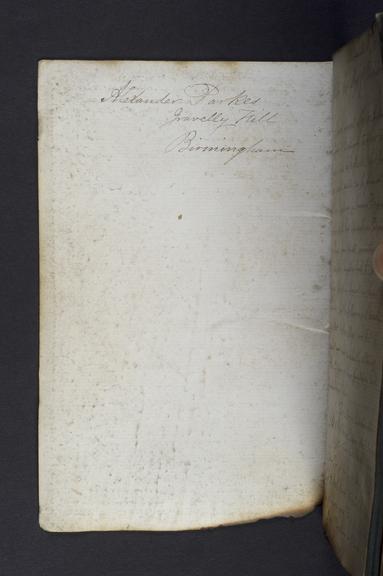 Alexander Parkes
Gravelly Hill
Birmingham